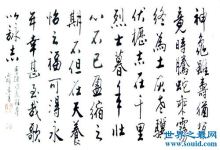 神龜雖壽猶有
竟時騰蛇乘霧
終為土灰老驥
伏櫪志在千里
烈士暮年壯
心不已盈縮之
期不但在天養
怡之福可得永
年幸甚至哉歌
以詠志
世界之最网